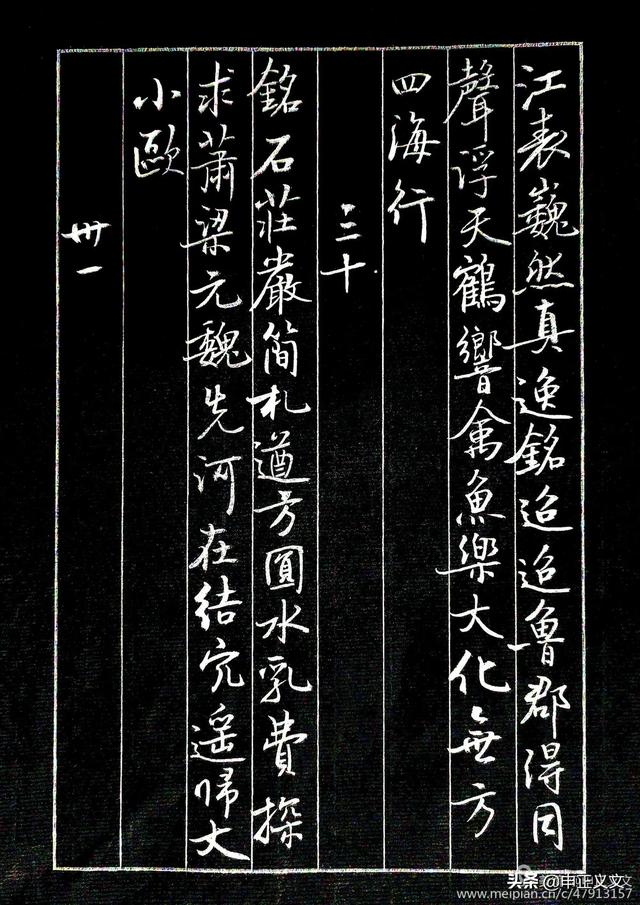 江表巍然真逸銘迢迢魯郡得同
聲浮天鶴響禽魚樂大化無方
四海行
三十
銘石莊嚴簡札遒方圓水乳費探
求蕭梁元魏先河在結穴遥歸大
小歐
卅一
头条 @申正义文
www.meipian.cn/c/47913157